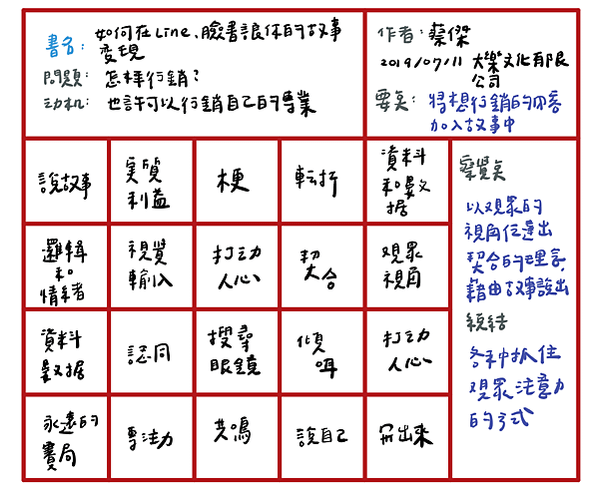 書名: 如何在Line、臉書讓你的故事
變現
問題: 怎樣行銷?
动机: 也許可以行銷自己的專業
作者: 蔡傑
2019/07/11 大樂文化有限
公司
要点: 將想行銷的內容
加入故事中
說故事
実質
利益
梗
転折
資料
和數
据
邏輯
和
情緒
視覺
輸入
打动
人心
契
合
观眾
視角
資料
數据
認同
搜尋
眼鏡
傾
听
打动
人心
永遠的
賽局
專注力
共鳴
說自己
冊出來
察覺点
以观眾的
視角位置出
契合的理念,
藉由故事說出
總結
各种抓住
观眾注意力
的方式